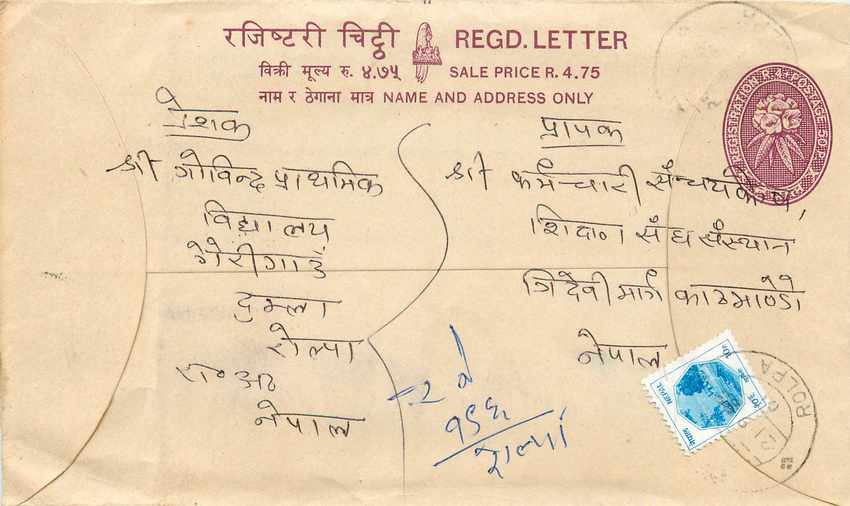 रजिष्टरी चिट्ठी REGD. LETTER
विक्री मूल्य रु. ४.७५ SALE PRICE R. 4.75
नाम र ठेगाना मात्र NAME AND ADDRESS ONLY
REGISTRATION R. 4 POSTAGE 50 P.
प्रेशक
श्री गोविन्द प्राथमिक
विद्यालय
गेरीगाउँ
दुम्ला
रोल्पा
रा०अ०
नेपाल
प्रापक
श्री कर्मचारी सञ्चयकोष,
शिक्षण संघ संस्थान
त्रिदेवी मार्ग काठमाण्डौ
नेपाल
१९६
रोल्पा
नेपाल NEPAL
ROLPA